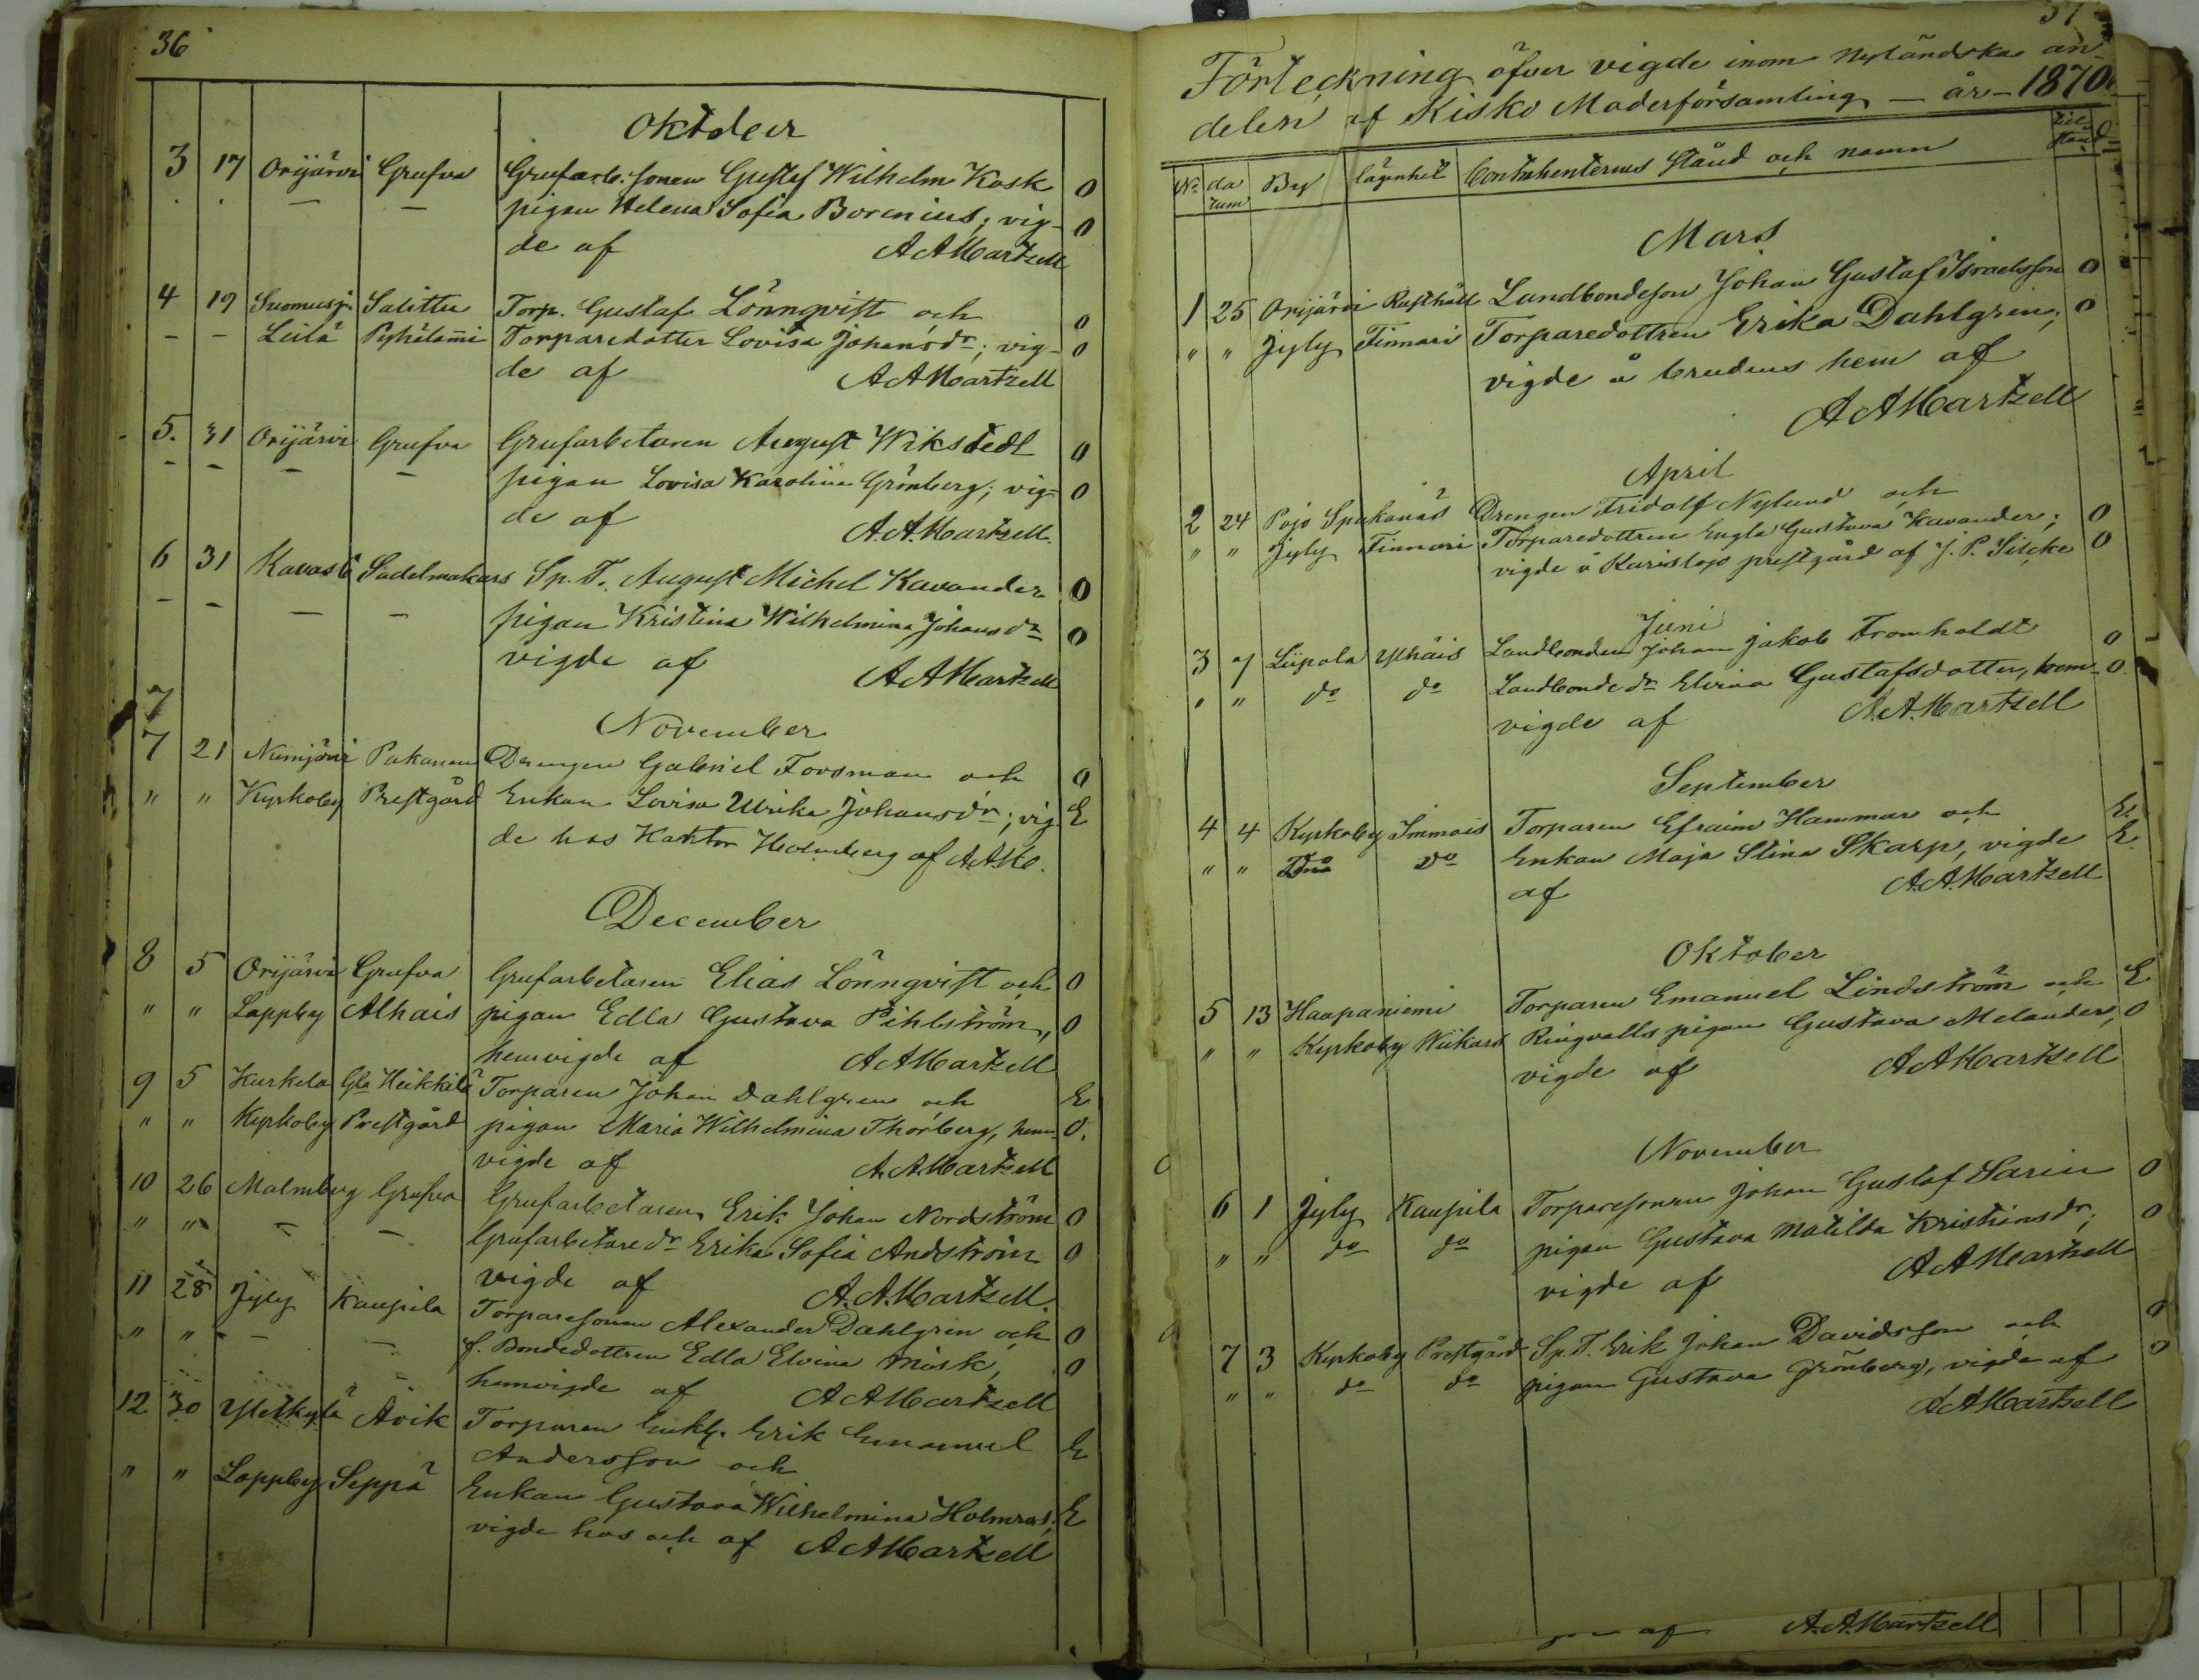 36
Oktober
3 17 Orijärvi Grufva Grufarb. sonen Gustaf Wilhelm Kosk 0
– – pigan Helena Sofia Borenius; vig- 0
de af AAMartzell
4 19 Suomusj. Salittu Torp. Gustaf Lönnqvist och 0
– – Leilä Pyhälammi Torparedotter Lovisa Johansdr; vig- 0
de af AAMartzell
5. 31 Orijärvi Grufva Grufarbetaren August Wikstedt 0
– – – – pigan Lovisa Karolina Grönberg; vig- 0
de af A.A.Martzell.
6 31 Kavasto Sadelmakars Sp. T. August Michel Kavander 0
– – – – pigan Kristina Wilhelmina Johansdr 0
vigde af AAMartzell
7
November
7 21 Numjärvi Pakanen Drengen Gabriel Forsman och 0
" " Kyrkoby Prestgård Enkan Lovisa Ulrika Johansdr; vig- E
de hos Kantor Holmberg af A.A.M.
December
8 5 Orijärvi Grufva Grufarbetaren Elias Lönnqvist och 0
" " Lappby Alhais pigan Edla Gustava Pihlström, 0
hemvigde af AAMartzell
9 5 Kurkela Gla Heikkilä Torparen Johan Dahlgren och E
" " Kyrkoby Prestgård pigan Maria Wilhelmina Thorberg, hem- 0.
vigde af A.AMartzell
10 26 Malmberg Grufva Grufarbetaren Erik Johan Nordström 0
" " – – Grufarbetaredr Erika Sofia Andström 0
vigde af A.A.Martzell.
11 28 Jyly Kaupila Torparesonen Alexander Dahlgren och 0
" " – – f. Bondedottren Edla Elvina Misk, 0
hemvigde af AAMartzell
12 30 Yletkylä Avik Torparen Enkl. Erik Emanuel E
Andersson och
" " Lappby Seppä Enkan Gustava Wilhelmina Holmroos, E
vigde hos och af AAMartzell
37
Förteckning öfver vigde inom Nyländska an
delen af Kisko Moderförsamling – år – 1870.
No. datum By lägenhet Contrahenternes Stånd och namn till stånd
Mars
1 25 Orijärvi Rusthåll Landbondeson Johan Gustaf Israelsson 0
" " Jyly Finnari Torparedottren Erika Dahlgren; 0
vigde å brudens hem af
AAMartzell
April
2 24 Pojo Spakanäs Drengen Fridolf Nylund och 0
" " Jyly Finnari Torparedottren Engla Gustava Kavander; 0
vigde å Karislojo prestgård af J. P. Silcke
Juni
3 7 Liipola Ylhäis Landbonden Johan Jakob Fromholdt 0
" " do do Landbondedr Elvina Gustafsdotter, hem- 0
vigde af A.A.Martzell
September
4 4 Kyrkoby Immois Torparen Efraim Hammar och E.
" " Do Do Enkan Maja Stina Skarp, vigde E
af A.A.Martzell
Oktober
5 13 Haapaniemi Torparen Emanuel Lindström och E
" " Kyrkoby Wiikard Ringvalls pigan Gustava Melander, 0
vigde af AAMartzell
November
6 1 Jyly Kaupila Torparesonen Johan Gustaf Sarin 0
" " do do pigan Gustava Matilda Kristiansdr; 0
vigde af AAMartzell
7 3 Kyrkoby Prestgård Sp. T. Erik Johan Davidsson och 0
" " do do pigan Gustava Grönberg, vigde af 0
AAMartzell
af A.A.Martzell